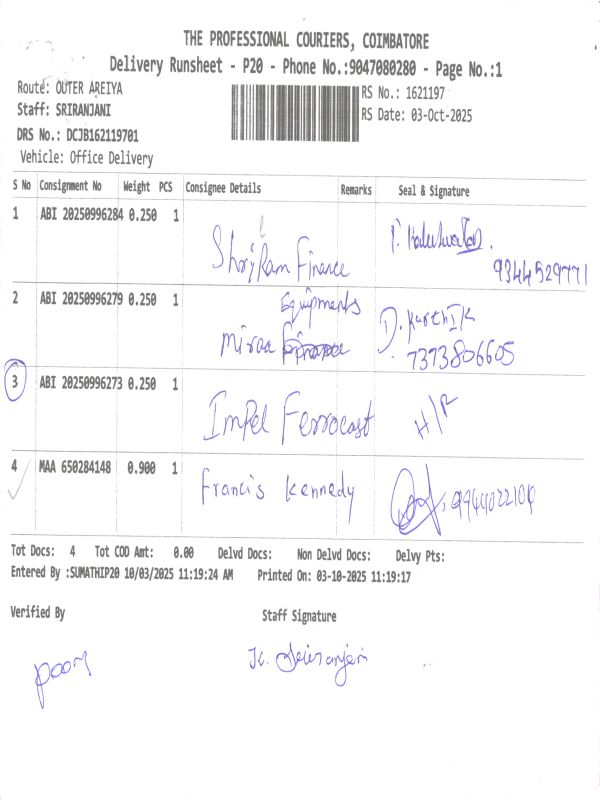 THE PROFESSIONAL COURIERS, COIMBATORE
Delivery Runsheet - P20 - Phone No.:9047080280 - Page No.:1
Route: OUTER AREIYA
RS No.: 1621197
Staff: SRIRANJANI
RS Date: 03-Oct-2025
DRS No.: DCJB162119701
Vehicle: Office Delivery
S No Consignment No Weight PCS Consignee Details Remarks Seal & Signature
1 ABI 20250996284 0.250 1
Shriram Finance
9344529771
2 ABI 20250996279 0.250 1
Equipments
D. Karthik
Miraa
7373806605
3 ABI 20250996273 0.250 1
Impel Ferrocast H/F
4 MAA 650284148 0.900 1
Francis Kennedy
Tot Docs: 4 Tot COD Amt: 0.00 Delvd Docs: Non Delvd Docs: Delvy Pts:
Entered By :SUMATHIP20 10/03/2025 11:19:24 AM Printed On: 03-10-2025 11:19:17
Verified By Staff Signature